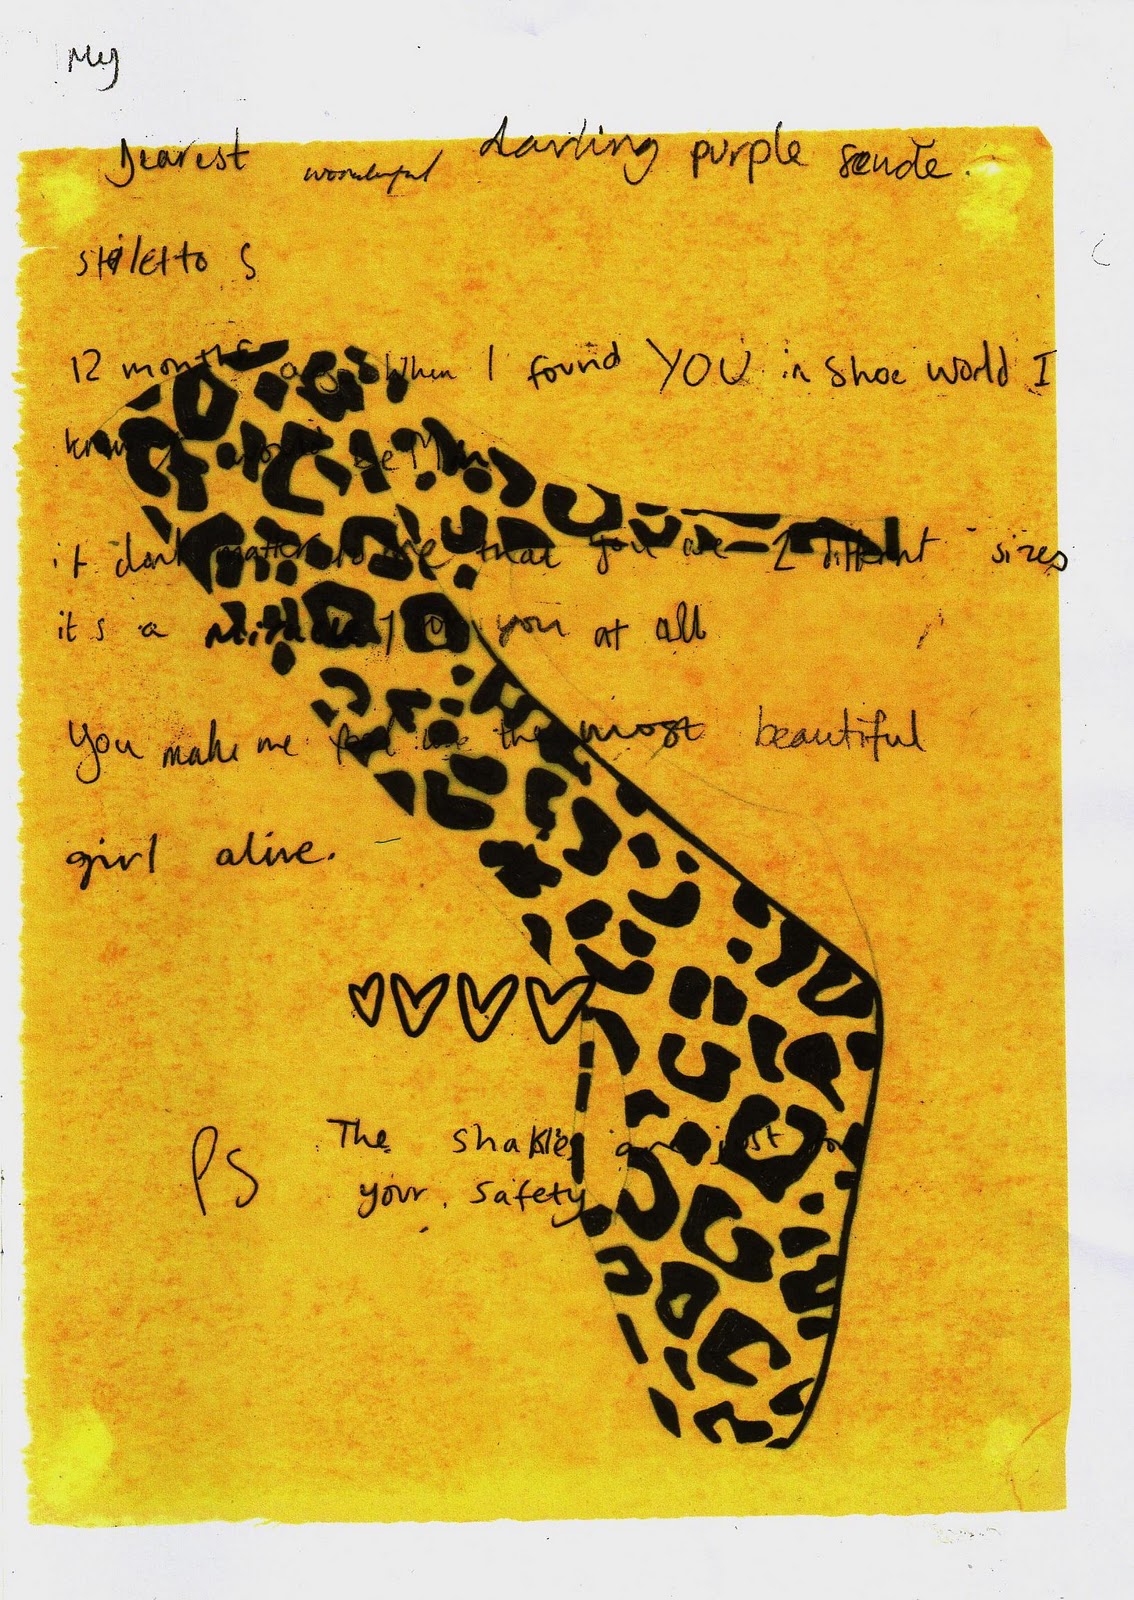 My
Dearest wonderful darling purple seude.
stiletto s
12 months ago When I found YOU in Shoe world I
knew I would be Mine
it dont matter to me that you are 2 different sizes
it's a you at all
You make me feel like the most beautiful
girl alive.
PS The shakles are just for
your safety